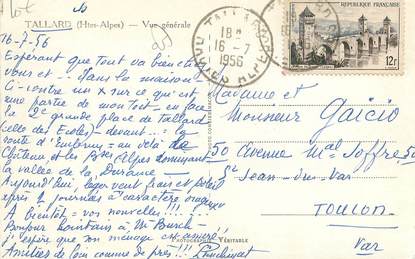 TALLARD (Htes-Alpes) — Vue générale
16-7-56
Espérant que tout va bien chez
vous et dans la maison
Ci-contre un x sur ce qui est
une partie de mon toit - en face
la 2e grande place de Tallard
(celle des Ecoles) - devant
route d'Embrun - au delà de
Château et les Bses Alpes dominant
la vallée de la Durance -
Aujourd'hui, léger vent frais et soleil
après 2 journées à caractère orageux
A bientôt = vos nouvelles !!!
Bonjour lointain à Mr Burch
J'espère que son ménage est
Amitiés de loin comme de près !!!
PHOTOGRAPHIE VÉRITABLE
TALLARD
18H
16-7
1956
HTES ALPES
RÉPUBLIQUE FRANÇAISE
12F
Madame et
Monsieur Gaicio
50 Avenue Mal Joffre 50
St Jean-du-Var
TOULON
Var